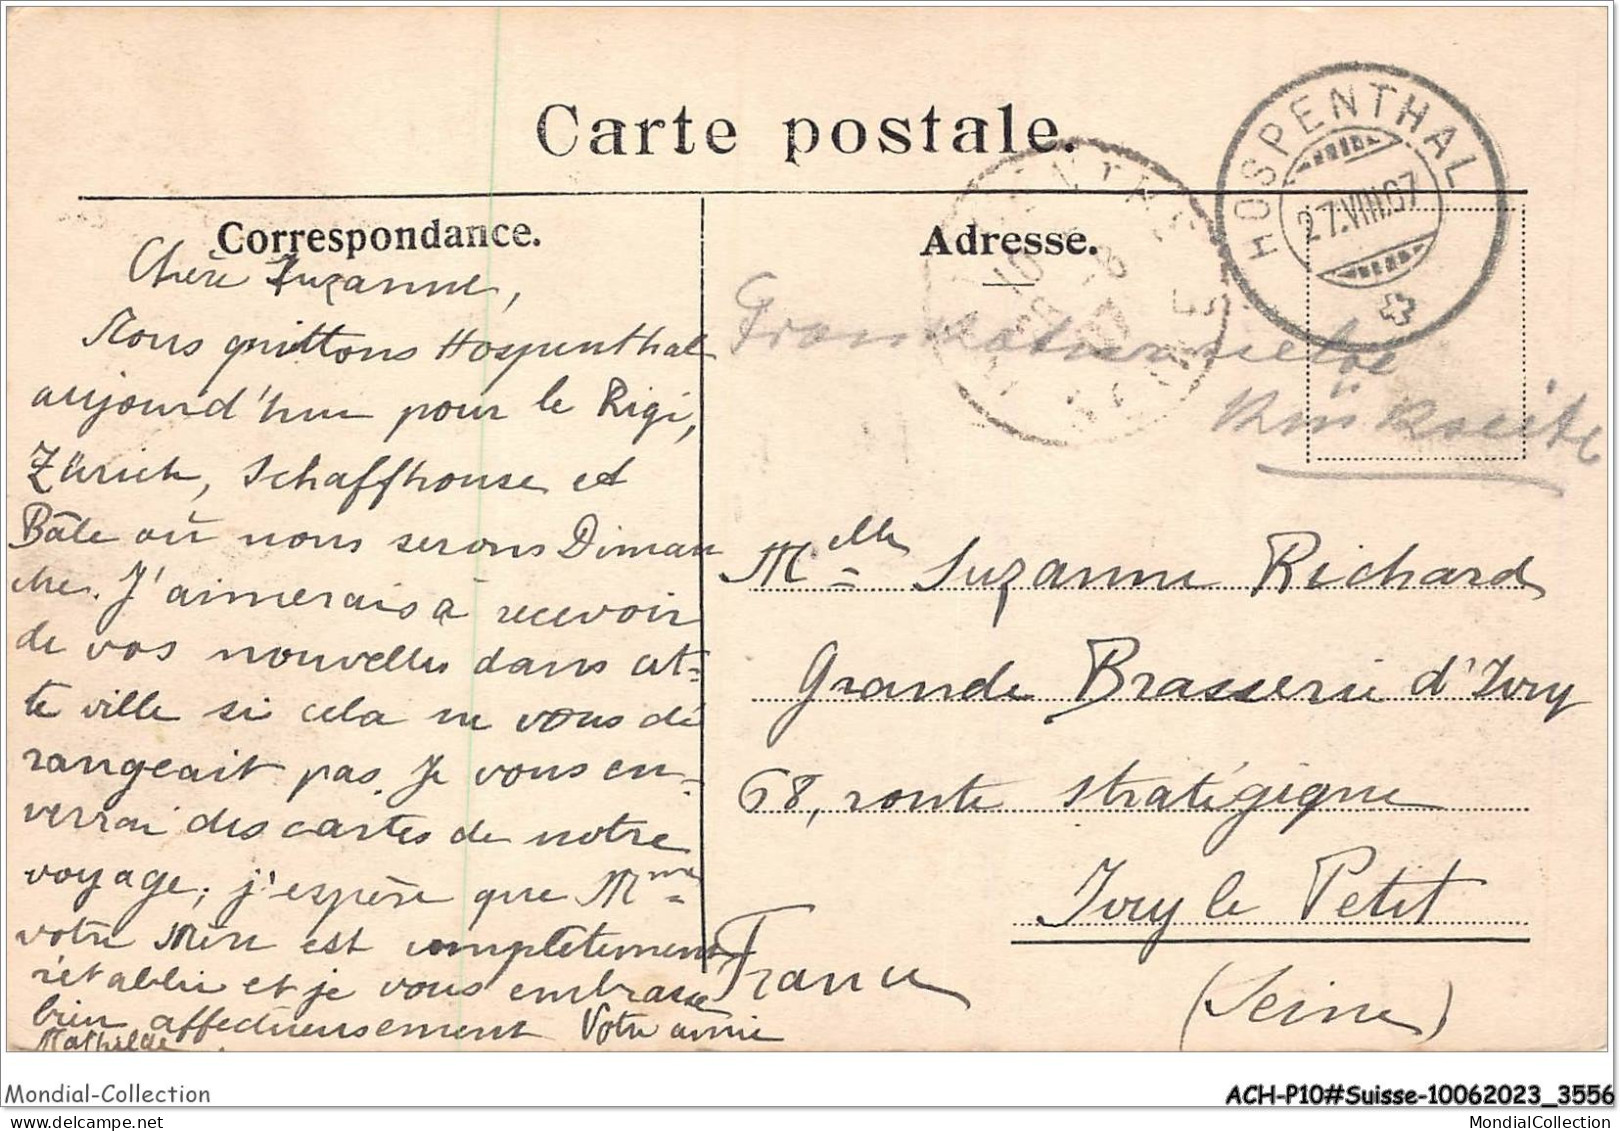 Carte postale.
Correspondance.
Chère Suzanne,
Nous quittons Hospenthal
aujourd'hui pour le Rigi,
Zürich, Schaffhouse et
Bâle où nous serons Diman
che. J'aimerais à recevoir
de vos nouvelles dans cet-
te ville si cela ne vous dé
rangeait pas. Je vous en-
verrai des cartes de notre
voyage; j'espère que Mme
votre Mère est complètement
rétablie et je vous embrasse
bien affectueusement Votre amie
Mathilde
Adresse.
HOSPENTHAL
27.VIII.07
Frankatur
Rückseite
Melle Suzanne Richard
Grande Brasserie d'Ivry
68, route stratégique
Ivry le Petit
France
(Seine)
Mondial-Collection
ACH-P10#Suisse-10062023_3556
MondialCollection